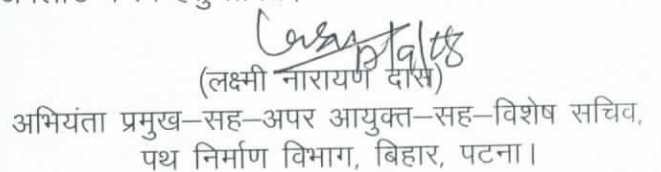 (लक्ष्मी नारायण दास)
अभियंता प्रमुख–सह–अपर आयुक्त–सह–विशेष सचिव,
पथ निर्माण विभाग, बिहार, पटना।